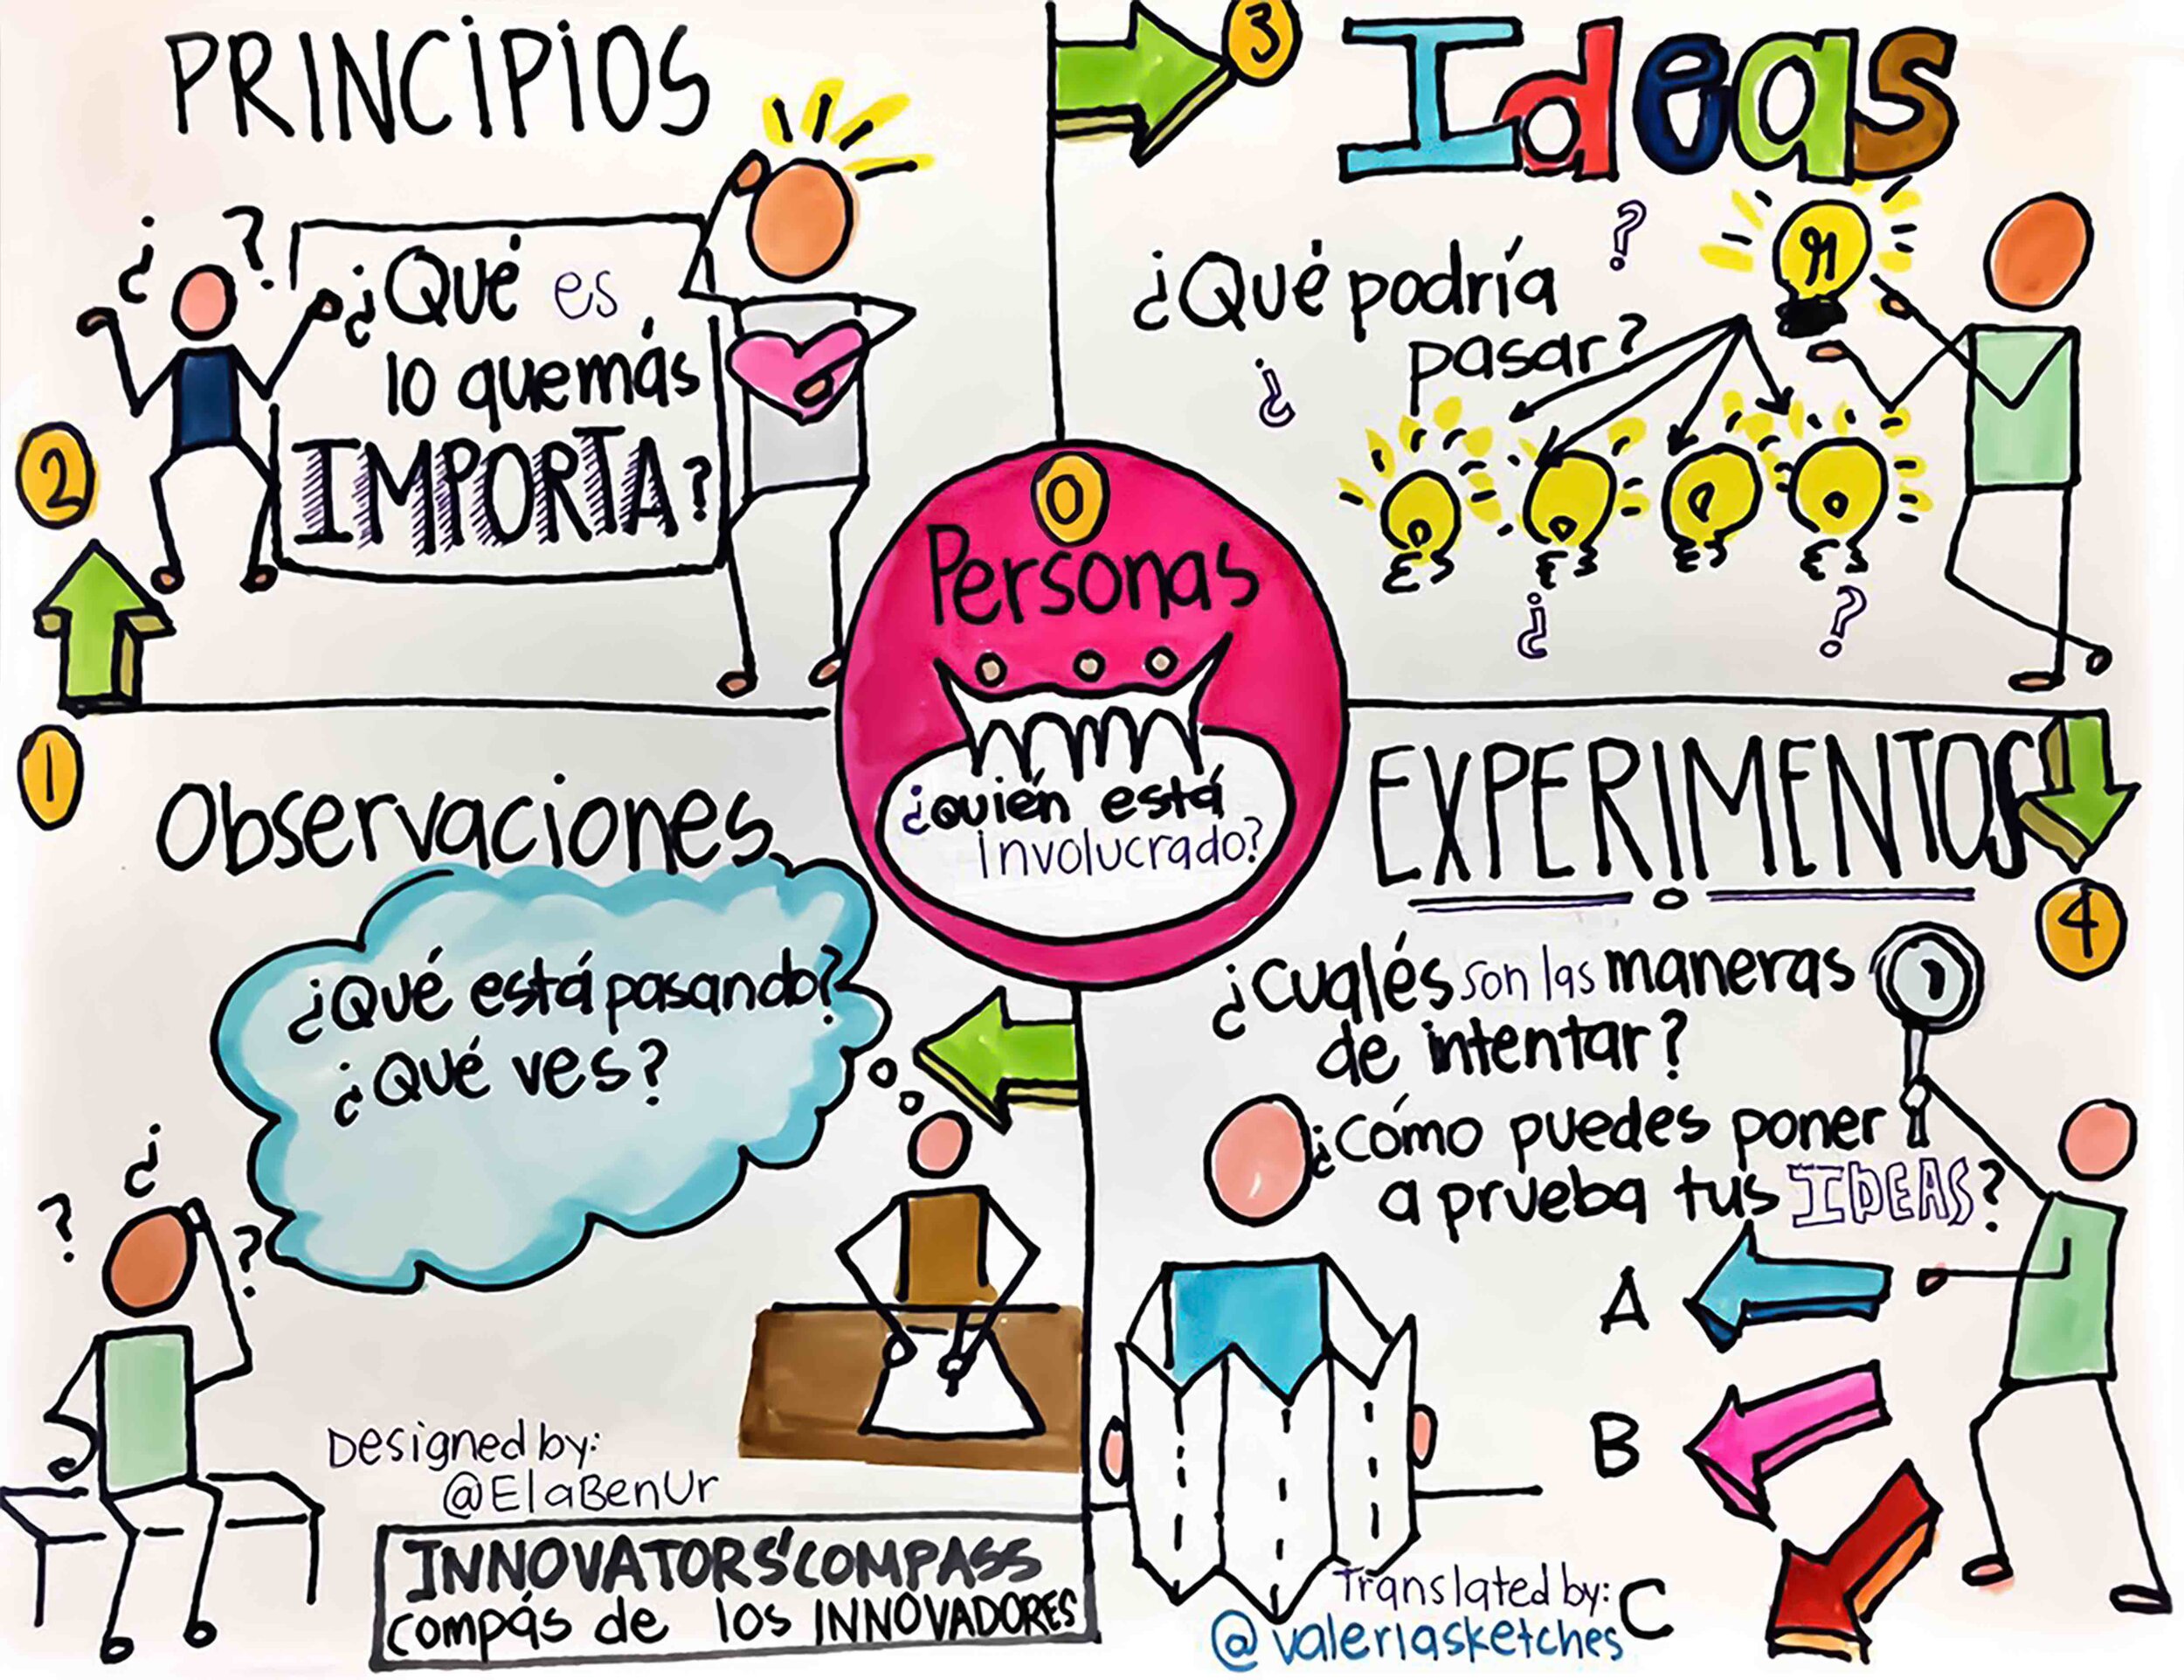 PRINCIPIOS
¿ ?
¿Qué es
lo que más
IMPORTA?
2
3
Ideas
?
¿Qué podría
pasar?
¿
¿ ?
0
Personas
¿quién está
involucrado?
1
Observaciones
¿Qué está pasando?
¿Qué ves?
¿
? ?
Designed by:
@ElaBenUr
INNOVATORS'COMPASS
compás de los INNOVADORES
EXPERIMENTOS
4
¿Cualés son las maneras
de intentar?
¿Cómo puedes poner
a prueba tus IDEAS?
A
B
C
Translated by:
@valeriasketches